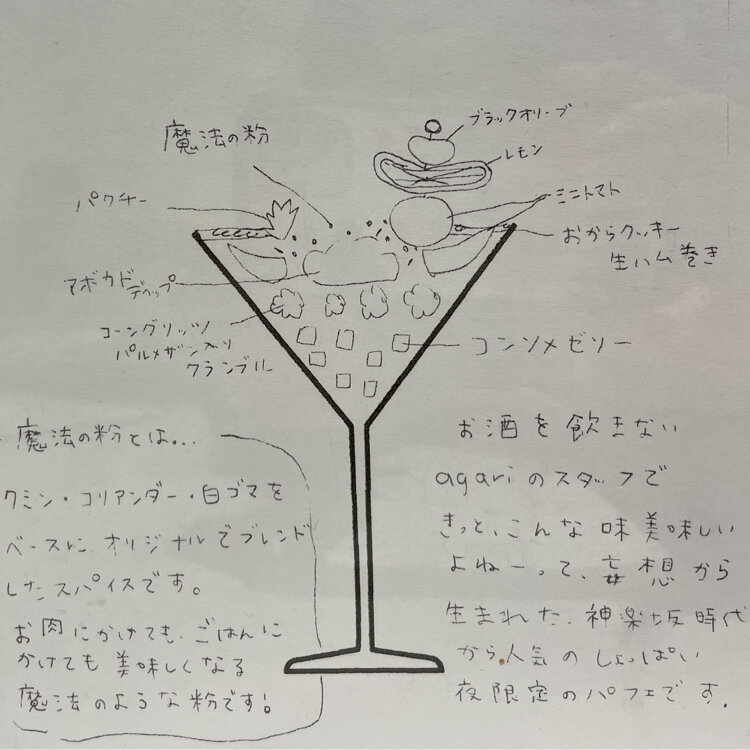 ブラックオリーブ
レモン
魔法の粉
ミニトマト
パクチー
おからクッキー
生ハム巻き
アボカド
ディップ
コーングリッツ
パルメザン入り
クランブル
コンソメゼリー
魔法の粉とは...
クミン・コリアンダー・白ゴマを
ベースに、オリジナルでブレンド
したスパイスです。
お肉にかけても、ごはんに
かけても美味しくなる
魔法のような粉です!
お酒を飲まない
agariのスタッフで
きっと、こんな味美味しい
よねーって、妄想から
生まれた、神楽坂時代
から人気のしょっぱい
夜限定のパフェです。